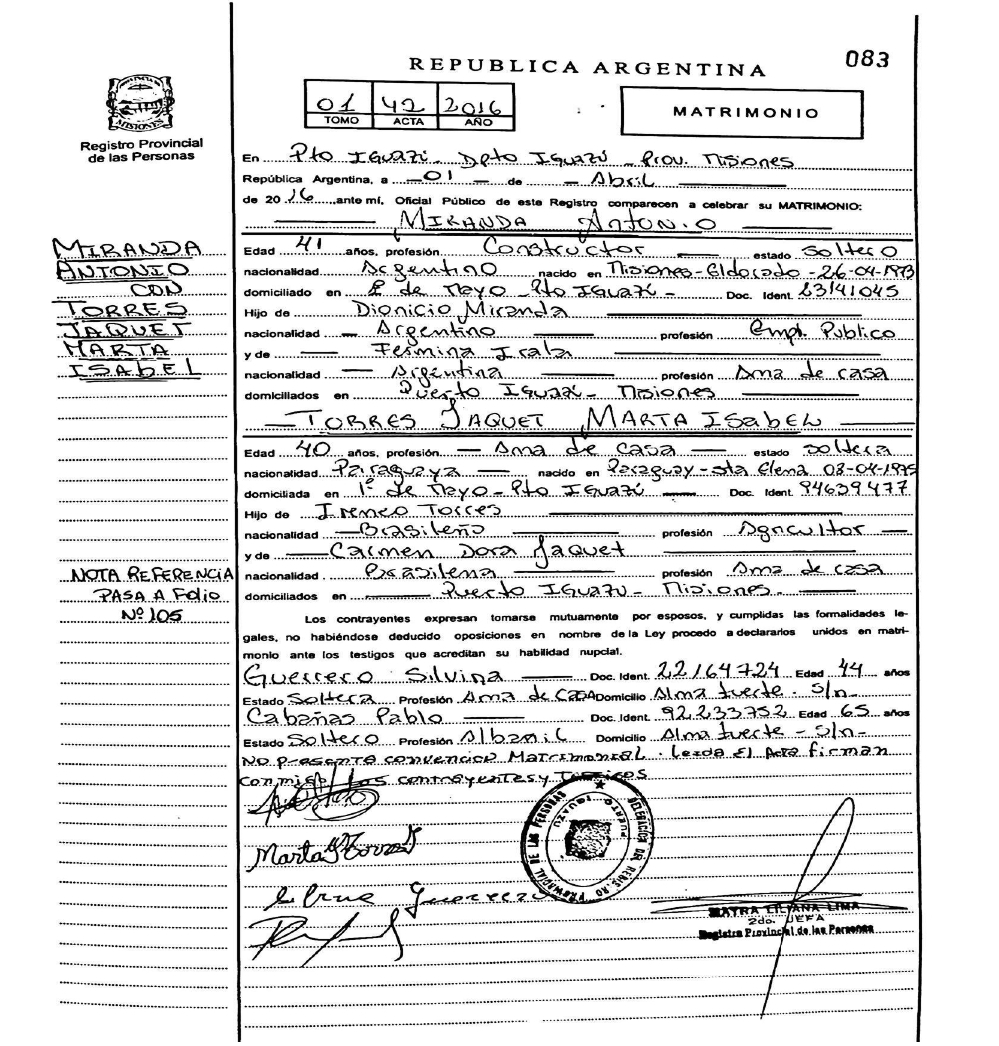 083
REPUBLICA ARGENTINA
01 42 2016
TOMO ACTA AÑO
MATRIMONIO
MISIONES
Registro Provincial
de las Personas
En Pto Iguazú - Dpto Iguazú - Prov. Misiones
República Argentina, a 01 de Abril
de 2016, ante mí, Oficial Público de este Registro comparecen a celebrar su MATRIMONIO:
MIRANDA ANTONIO
MIRANDA
ANTONIO
CON
TORRES
JAQUET
MARTA
ISABEL
Edad 41 años, profesión Constructor estado soltero
nacionalidad Argentino nacido en Misiones - Eldorado - 26-04-1973
domiciliado en 1º de Mayo - Pto Iguazú - Doc. Ident. 23141045
Hijo de Dionicio Miranda
nacionalidad Argentino profesión Empl. Publico
y de Fermina Irala
nacionalidad Argentina profesión Ama de casa
domiciliados en Puerto Iguazú - Misiones
TORRES JAQUET MARTA ISABEL
Edad 40 años, profesión Ama de casa estado soltera
nacionalidad Paraguaya nacido en Paraguay - Sta Elena 08-04-1975
domiciliada en 1º de Mayo - Pto Iguazú Doc. Ident. 94639477
Hijo de Ireneo Torres
nacionalidad Brasileño profesión Agricultor
y de Carmen Dora Jaquet
nacionalidad Brasilena profesión Ama de casa
domiciliados en Puerto Iguazu - Misiones.
NOTA REFERENCIA
PASA A Folio
Nº 105
Los contrayentes expresan tomarse mutuamente por esposos, y cumplidas las formalidades le-
gales, no habiéndose deducido oposiciones en nombre de la Ley procedo a declararlos unidos en matri-
monio ante los testigos que acreditan su habilidad nupcial.
Guerrero Silvina Doc. Ident. 22164724 Edad 44 años
Estado Soltera Profesión Ama de Casa Domicilio Alma fuerte - S/n -
Cabañas Pablo Doc. Ident. 92.233752 Edad 65 años
Estado Soltero Profesión Albanil Domicilio Alma fuerte - S/n -
No presenta convencion Matrimonial. Leida El Acta firman
conmigo los contrayentes y Testigos
Marta J Torres
Guerrero
DELEGACION DEL REGISTRO PROVINCIAL DE LAS PERSONAS
PUERTO IGUAZU
MAYRA LILIANA LIMA
2do. JEFA
Registro Provincial de las Personas